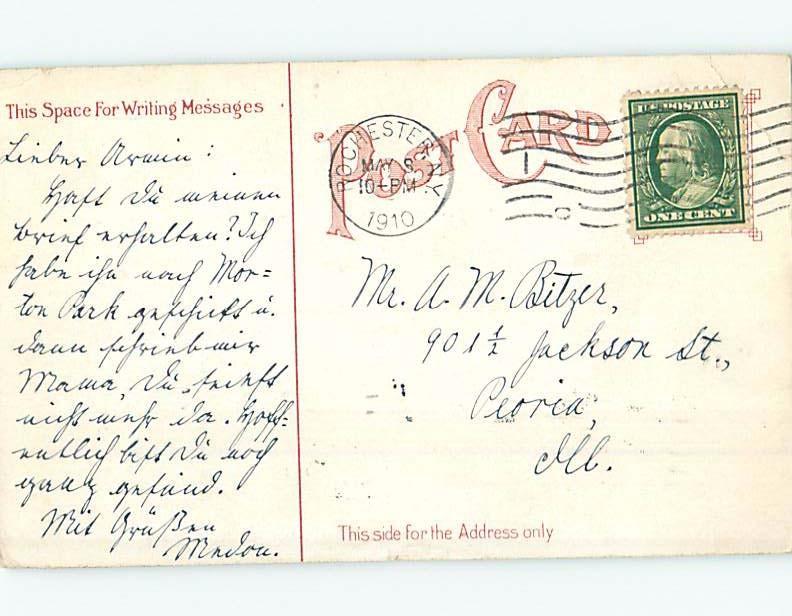 This Space For Writing Messages
Lieber Armin:
Hast Du meinen
Brief erhalten? Ich
habe ihn nach Mor=
ton Park geschickt u.
dann schrieb mir
Mama, Du seiest
nicht mehr da. Hoff=
entlich bist Du noch
ganz gesund.
Mit Grüßen
POST CARD
ROCHESTER, N.Y.
MAY 8
10-PM
1910
U.S. POSTAGE
ONE CENT
Mr. A. M. Bitzer,
901½ Jackson St.,
Peoria,
Ill.
This side for the Address only